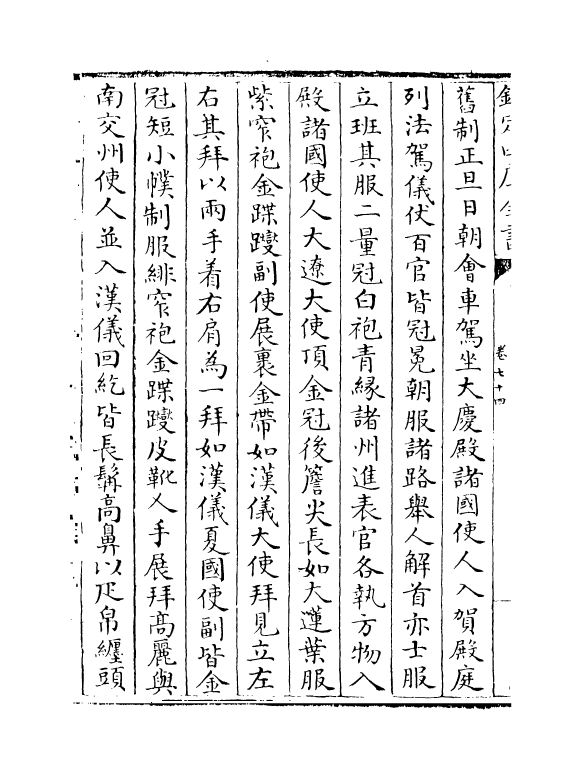 欽定四庫全書
卷七十四
舊制正旦日朝會車駕坐大慶殿諸國使人入賀殿庭
列法駕儀仗百官皆冠冕朝服諸路舉人解首亦士服
立班其服二量冠白袍青緣諸州進表官各執方物入
殿諸國使人大遼大使頂金冠後簷尖長如大蓮葉服
紫窄袍金蹀躞副使展裹金帶如漢儀大使拜見立左
右其拜以兩手着右肩為一拜如漢儀夏國使副皆金
冠短小幞制服緋窄袍金蹀躞皮靴乂手展拜高麗與
南交州使人並入漢儀回紇皆長髯高鼻以疋帛纏頭